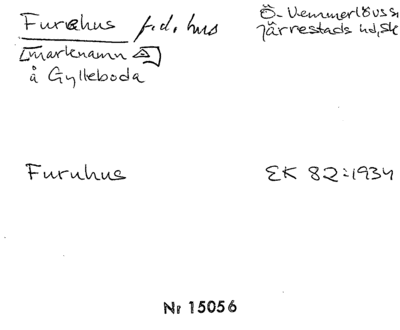 Furuhus f.d. hus
Ö. Vemmerlövs s
Järrestads hd, Sk
[marknamn]
å Gylleboda
Furuhus
EK 82:1934
Nr 15056